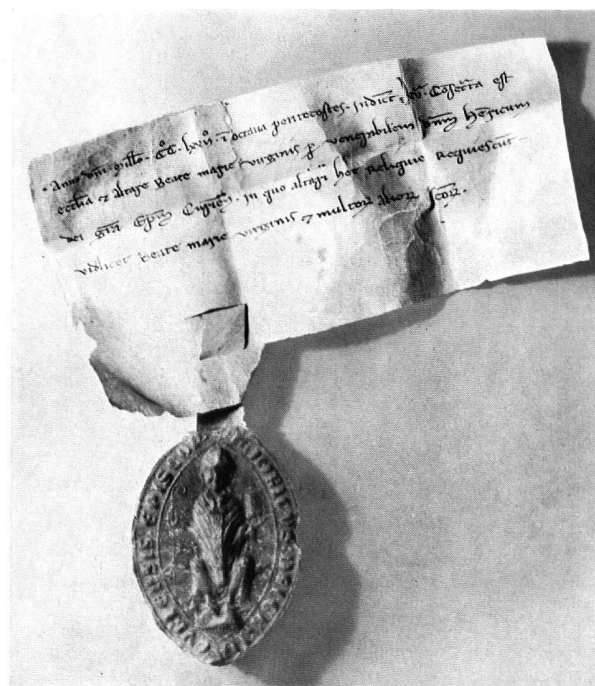 Anno dni millo · CC · i octaua pentecostes · Indict · Cosecrata est
ecclia & altare Beate marie uirginis p uenerabilem dnm henricum
dei gra Epm Curien · In quo altari hec Reliquie Requiescut ·
videlicet Beate marie uirginis & multor alior scor ·
RICVS DEI CVRIENSIS EPISC